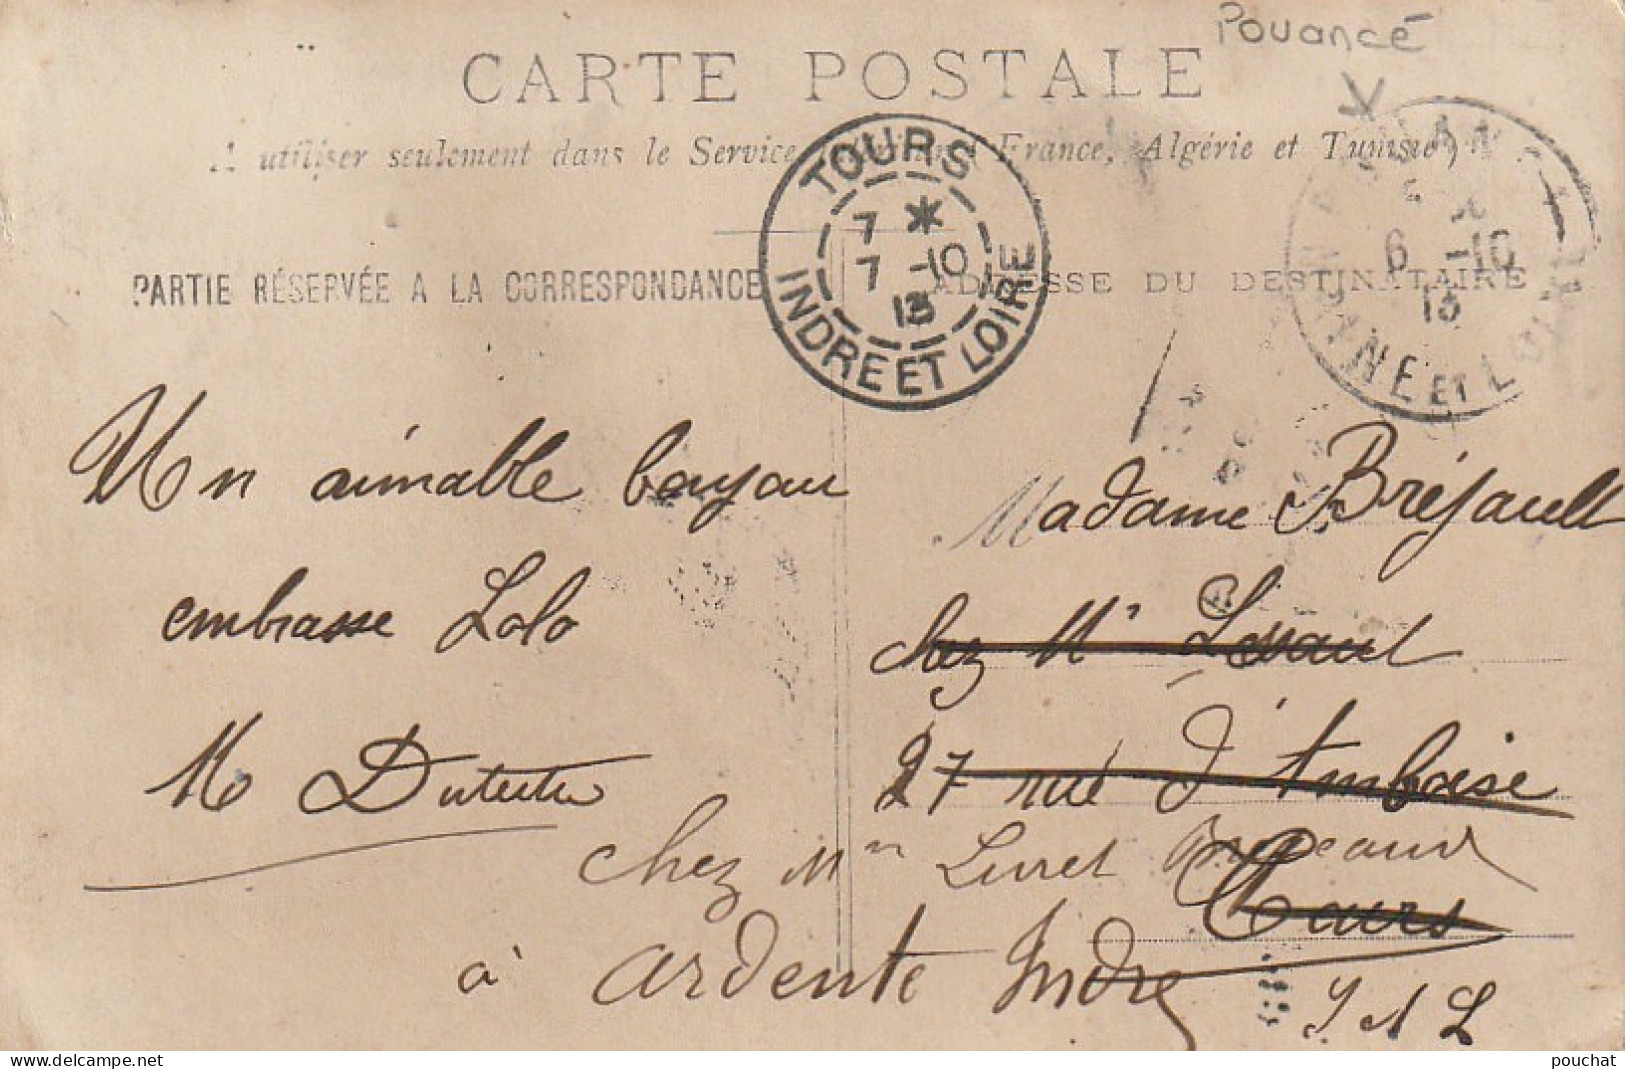 Pouancé
CARTE POSTALE
A utiliser seulement dans le Service France, Algérie et Tunisie)
TOURS
7 *
7 -10
13
INDRE ET LOIRE
6 -10
13
ET LOIRE
PARTIE RÉSERVÉE A LA CORRESPONDANCE
ADRESSE DU DESTINATAIRE
Un aimable bonjour
embrasse Lolo
M
Madame Bréjault
chez Mr
27 rue d'Amboise
Tours
I et L
chez Mme
à ardente Indre
www.delcampe.net
pouchat